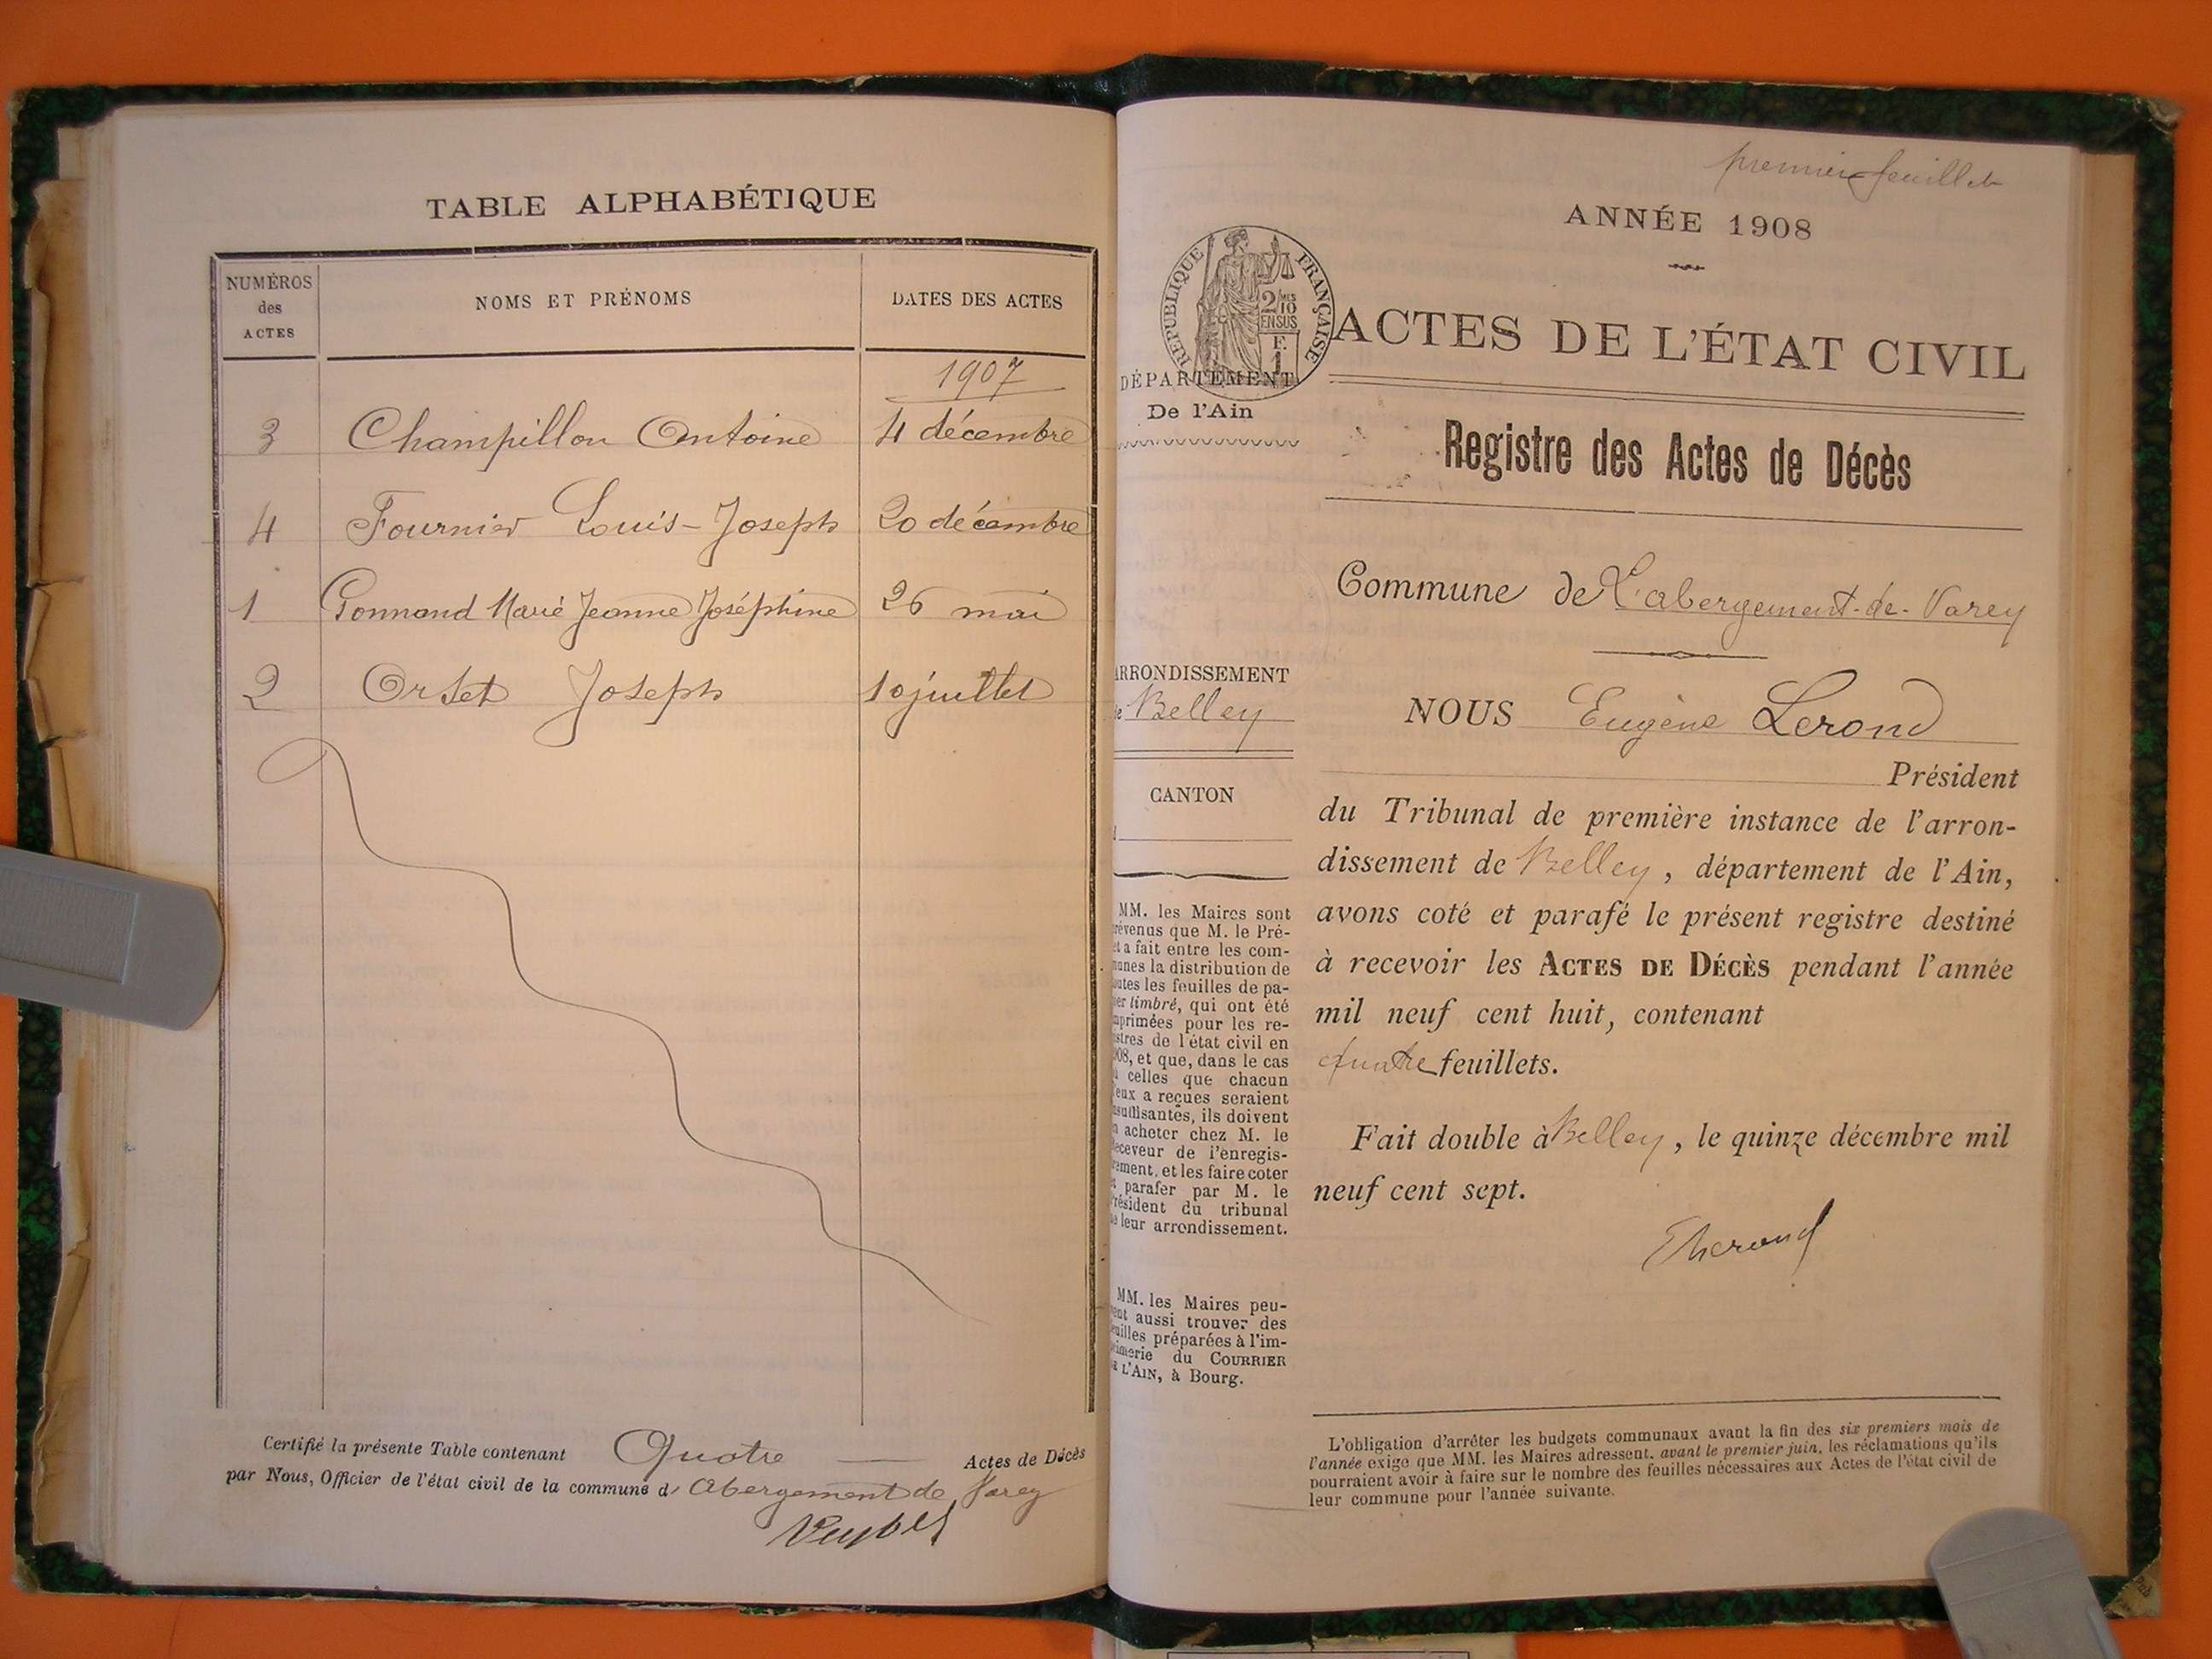 TABLE ALPHABÉTIQUE
NUMÉROS
des
ACTES
NOMS ET PRÉNOMS
DATES DES ACTES
1907
3 Champillon Antoine 4 décembre
4 Fournier Louis-Joseph 20 décembre
1 Gonnand Marie Jeanne Joséphine 26 mai
2 Orset Joseph 10 juillet
Certifié la présente Table contenant Quatre — Actes de Décès
par Nous, Officier de l'état civil de la commune d' Abergement de Varey
premier feuillet
ANNÉE 1908
RÉPUBLIQUE FRANÇAISE
2/10
EN SUS
F.
1
ACTES DE L'ÉTAT CIVIL
DÉPARTEMENT
De l'Ain
Registre des Actes de Décès
Commune de L'abergement-de-Varey
ARRONDISSEMENT
de Belley
CANTON
NOUS Eugène Lerond
Président
du Tribunal de première instance de l'arron-
dissement de Belley, département de l'Ain,
avons coté et parafé le présent registre destiné
à recevoir les ACTES DE DÉCÈS pendant l'année
mil neuf cent huit, contenant
quatre feuillets.
Fait double à Belley, le quinze décembre mil
neuf cent sept.
MM. les Maires sont
révenus que M. le Pré-
et a fait entre les com-
munes la distribution de
outes les feuilles de pa-
er timbré, qui ont été
mprimées pour les re-
istres de l'état civil en
908, et que, dans le cas
ù celles que chacun
'eux a reçues seraient
nsuffisantes, ils doivent
n acheter chez M. le
Receveur de l'enregis-
rement, et les faire coter
t parafer par M. le
Président du tribunal
de leur arrondissement.
MM. les Maires peu-
vent aussi trouver des
euilles préparées à l'im-
rimerie du COURRIER
DE L'AIN, à Bourg.
L'obligation d'arrêter les budgets communaux avant la fin des six premiers mois de
l'année exige que MM. les Maires adressent, avant le premier juin, les réclamations qu'ils
pourraient avoir à faire sur le nombre des feuilles nécessaires aux Actes de l'état civil de
leur commune pour l'année suivante.